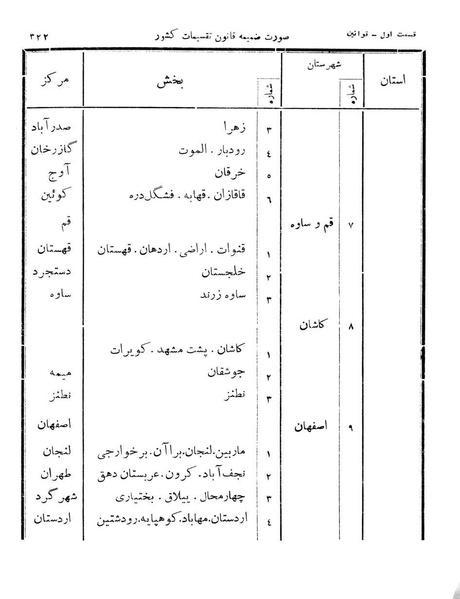 قسمت اول - قوانین صورت ضمیمه قانون تقسیمات کشور ۳۲۲
استان شهرستان شماره بخش شماره مرکز
۳ زهرا صدرآباد
٤ رودبار . الموت گازرخان
٥ خرقان آوج
٦ قاقازان . قهابه . فشگل‌دره کوئین
۷ قم و ساوه قم
۱ قنوات . اراضی . اردهان . قهستان قهستان
۲ خلجستان دستجرد
۳ ساوه زرند ساوه
۸ کاشان
۱ کاشان . پشت مشهد . کویرات
۲ جوشقان میمه
۳ نطنز نطنز
۹ اصفهان اصفهان
۱ ماربین.لنجان.براآن.برخوارجی لنجان
۲ نجف‌آباد . کرون . عربستان دهق طهران
۳ چهارمحال . ییلاق . بختیاری شهرگرد
٤ اردستان.مهاباد.کوهپایه.رودشتین اردستان